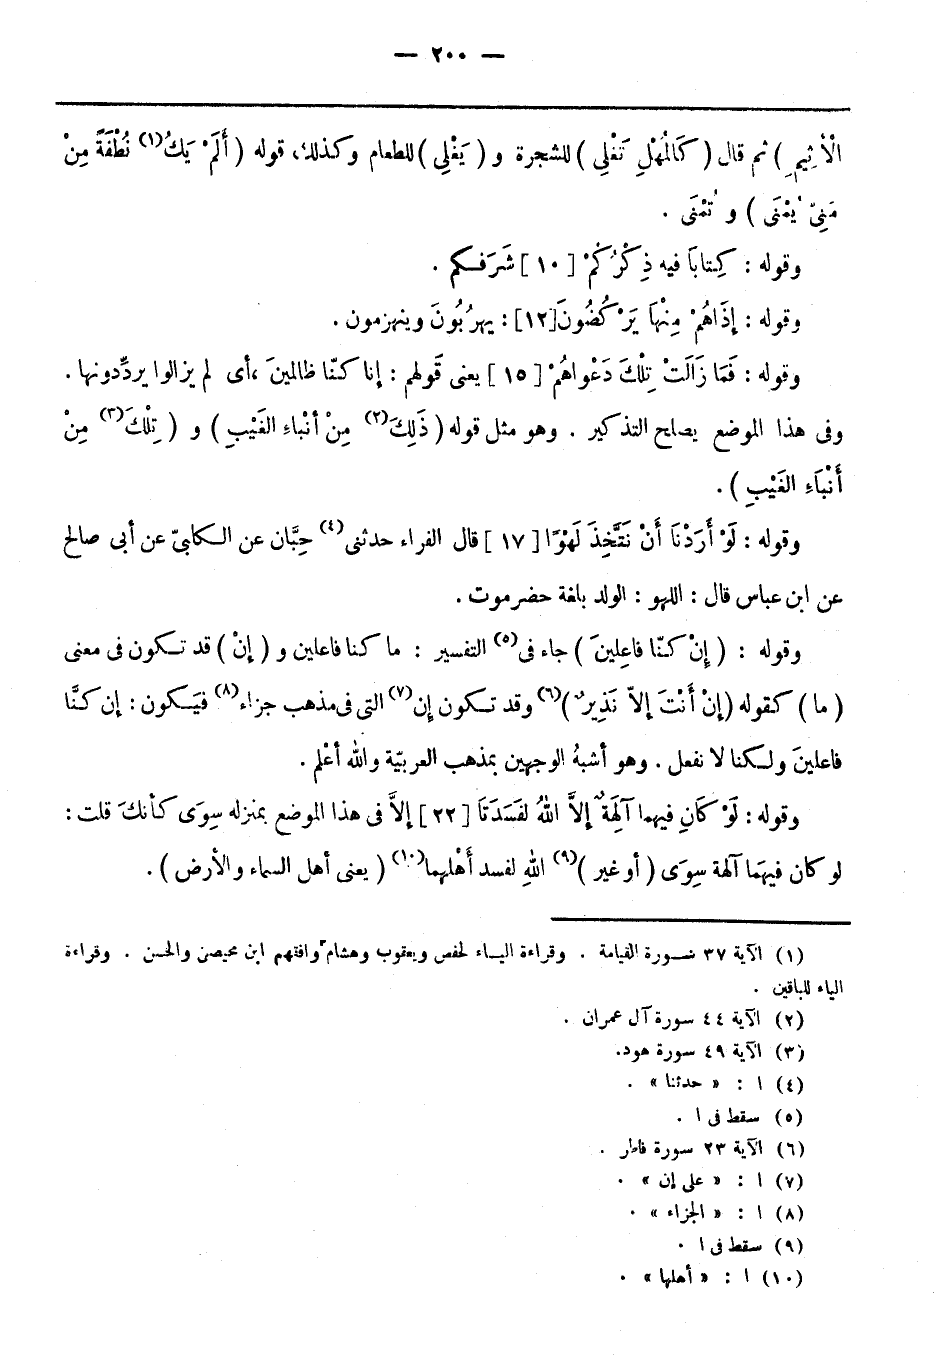 — ٢٠٠ —
الْأَثِيمِ ) ثم قال ( كَالْمُهْلِ تَغْلِى ) للشجرة و ( يَغْلِى ) للطعام وكذلك، قوله ( أَلَمْ يَكُ(١) نُطْفَةً مِنْ
مَنِىّ يُمْنَى ) و تُمْنَى .
وقوله : كِتابا فيه ذِكْرُكُمْ [ ١٠ ] شَرَفكم .
وقوله : إِذَاهُمْ مِنْهَا يَرْكُضُونَ [١٢] : يهرُبُونَ وينهزمون .
وقوله : فَمَا زَالَتْ تِلْكَ دَعْوَاهُمْ [ ١٥ ] يعنى قَولهم : إنا كنّا ظالمينَ ،أى لم يزالوا يردِّدونها .
وفى هذا الموضع يصلح التذكير . وهو مثل قوله ( ذَلِكَ(٢) مِنْ أنْباءِ الغَيْبِ ) و ( تِلْكَ(٣) مِنْ
أَنْبَاءِ الغَيْبِ ) .
وقوله : لَوْ أَرَدْنَا أَنْ نَتَّخِذَ لَهْوًا [ ١٧ ] قال الفراء حدثنى(٤) حِبَّان عن الكلبىّ عن أبى صالح
عن ابن عباس قال : اللهو : الولد بلغة حضرموت .
وقوله : ( إِنْ كنّا فاعِلينَ ) جاء فى(٥) التفسير : ما كنا فاعلين و ( إنْ ) قد تكون فى معنى
( ما ) كقوله ( إنْ أَنْتَ إلاّ نَذِيرٌ )(٦) وقد تكون إن(٧) التى فى مذهب جزاء(٨) فيَكون : إن كنَّا
فاعلينَ ولكنا لا نفعل . وهو أشبهُ الوجهين بمذهب العربيّة والله أعْلم .
وقوله : لَوْ كَانَ فيهما آلِهَةٌ إلاَّ اللهُ لفَسَدَتَا [ ٢٢ ] إلاَّ فى هذا الموضع بمنزله سِوَى كأنكَ قلت :
لو كان فيهمَا آلهة سِوَى ( أو غير )(٩) اللهِ لفسد أَهْلهما(١٠) ( يعنى أهل السماء والأرض ) .
(١) الآية ٣٧ سورة القيامة . وقراءة الياء لحفص ويعقوب وهشام وافقهم ابن محيصن والحسن . وقراءة
الياء للباقين .
(٢) الآية ٤٤ سورة آل عمران .
(٣) الآية ٤٩ سورة هود.
(٤) ا : « حدثنا » .
(٥) سقط فى ا .
(٦) الآية ٢٣ سورة فاطر .
(٧) ا : « على إن » .
(٨) ا : « الجزاء » .
(٩) سقط فى ا .
(١٠) ا : « أهلها » .